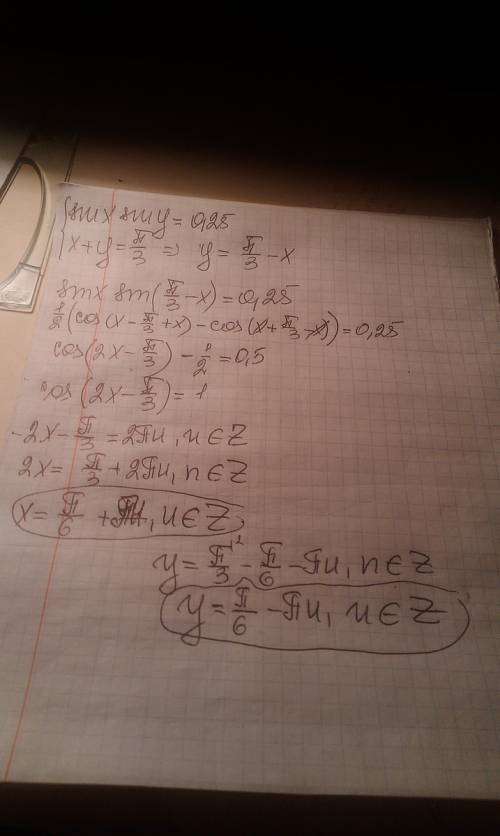 { sinx siny = 0,25
x+y = π/3 ⇒ y = π/3 - x
sinx sin(π/3 - x) = 0,25
1/2 (cos(x - π/3 + x) - cos(x + π/3 - x)) = 0,25
cos(2x - π/3) - 1/2 = 0,5
cos(2x - π/3) = 1
-2x - π/3 = 2πn, n ∈ Z
2x = π/3 + 2πn, n ∈ Z
x = π/6 + πn, n ∈ Z
y = π/3 \2 - π/6 - πn, n ∈ Z
y = π/6 - πn, n ∈ Z